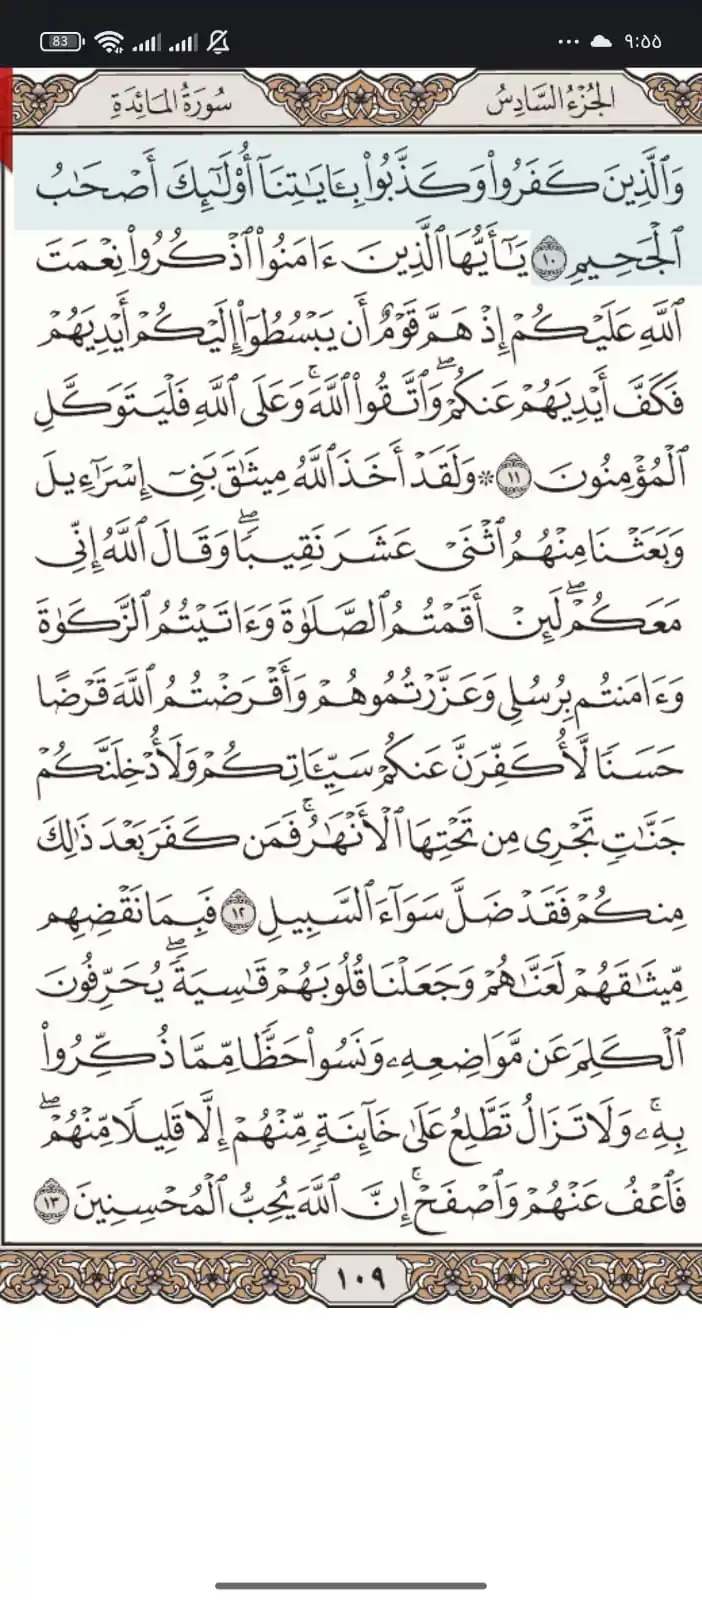 83
٩:٥٥
الجزء السادس
سورة المائدة
وَٱلَّذِينَ كَفَرُوا۟ وَكَذَّبُوا۟ بِـَٔايَـٰتِنَآ أُو۟لَـٰٓئِكَ أَصْحَـٰبُ
ٱلْجَحِيمِ ١٠ يَـٰٓأَيُّهَا ٱلَّذِينَ ءَامَنُوا۟ ٱذْكُرُوا۟ نِعْمَتَ
ٱللَّهِ عَلَيْكُمْ إِذْ هَمَّ قَوْمٌ أَن يَبْسُطُوٓا۟ إِلَيْكُمْ أَيْدِيَهُمْ
فَكَفَّ أَيْدِيَهُمْ عَنكُمْ ۖ وَٱتَّقُوا۟ ٱللَّهَ ۚ وَعَلَى ٱللَّهِ فَلْيَتَوَكَّلِ
ٱلْمُؤْمِنُونَ ١١ * وَلَقَدْ أَخَذَ ٱللَّهُ مِيثَـٰقَ بَنِىٓ إِسْرَٰٓءِيلَ
وَبَعَثْنَا مِنْهُمُ ٱثْنَىْ عَشَرَ نَقِيبًا ۖ وَقَالَ ٱللَّهُ إِنِّى
مَعَكُمْ ۖ لَئِنْ أَقَمْتُمُ ٱلصَّلَوٰةَ وَءَاتَيْتُمُ ٱلزَّكَوٰةَ
وَءَامَنتُم بِرُسُلِى وَعَزَّرْتُمُوهُمْ وَأَقْرَضْتُمُ ٱللَّهَ قَرْضًا
حَسَنًا لَّأُكَفِّرَنَّ عَنكُمْ سَيِّـَٔاتِكُمْ وَلَأُدْخِلَنَّكُمْ
جَنَّـٰتٍ تَجْرِى مِن تَحْتِهَا ٱلْأَنْهَـٰرُ ۚ فَمَن كَفَرَ بَعْدَ ذَٰلِكَ
مِنكُمْ فَقَدْ ضَلَّ سَوَآءَ ٱلسَّبِيلِ ١٢ فَبِمَا نَقْضِهِم
مِّيثَـٰقَهُمْ لَعَنَّـٰهُمْ وَجَعَلْنَا قُلُوبَهُمْ قَـٰسِيَةً ۖ يُحَرِّفُونَ
ٱلْكَلِمَ عَن مَّوَاضِعِهِۦ وَنَسُوا۟ حَظًّا مِّمَّا ذُكِّرُوا۟
بِهِۦ ۚ وَلَا تَزَالُ تَطَّلِعُ عَلَىٰ خَآئِنَةٍ مِّنْهُمْ إِلَّا قَلِيلًا مِّنْهُمْ ۖ
فَٱعْفُ عَنْهُمْ وَٱصْفَحْ ۚ إِنَّ ٱللَّهَ يُحِبُّ ٱلْمُحْسِنِينَ ١٣
١٠٩